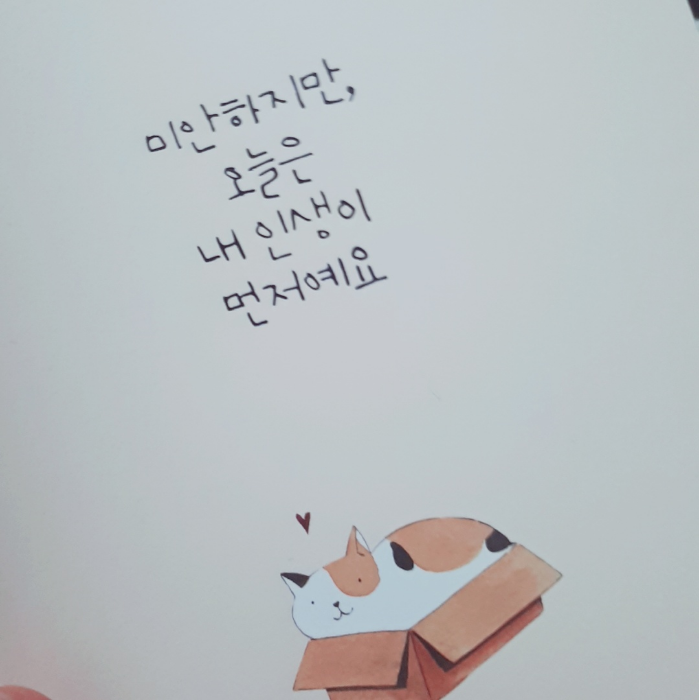 미안하지만,
오늘은
내 인생이
먼저예요